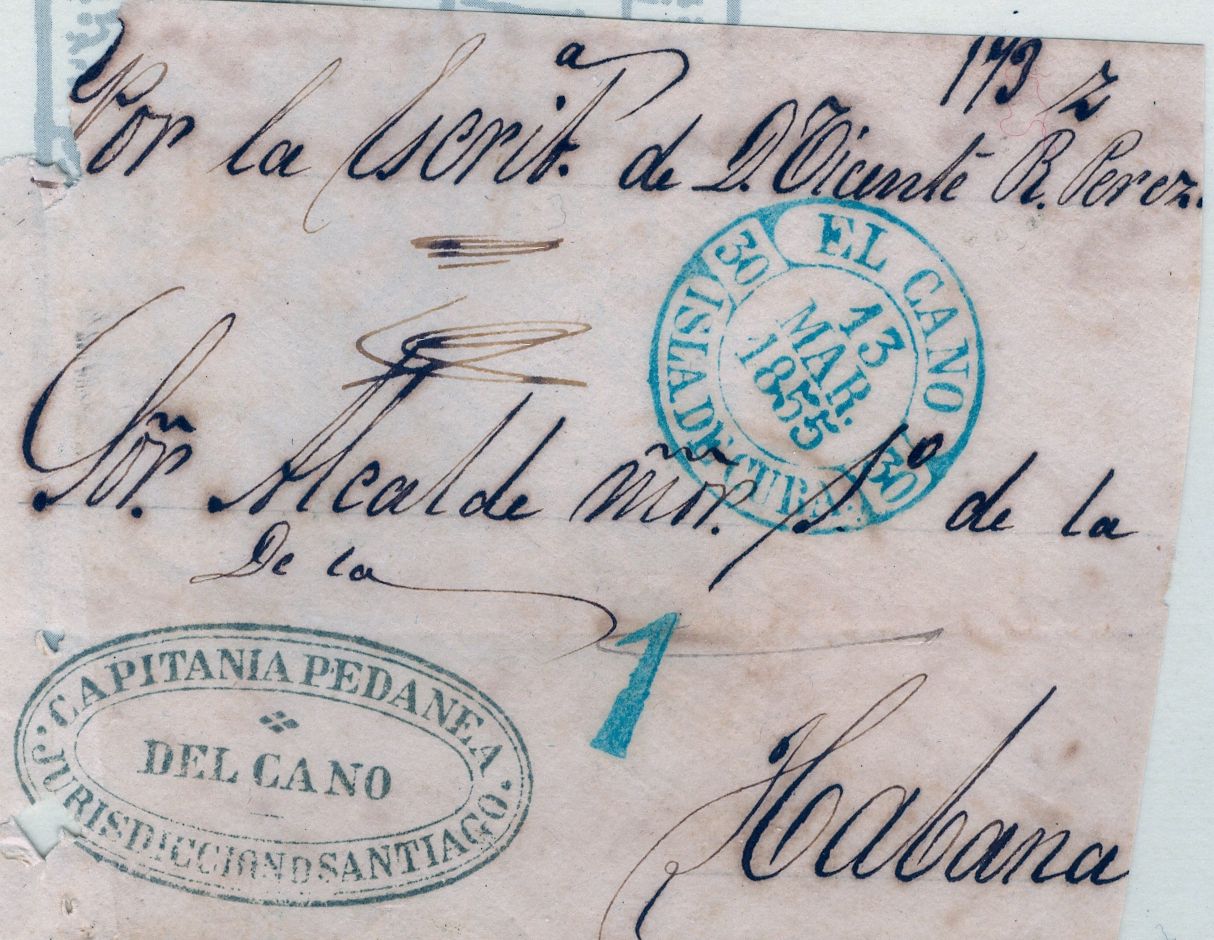 173 2
Por la Escrit.ª de D. Vicente R. Perez.
EL CANO
30 30
13
MAR.
1855
ISLA DE CUBA
Sor.n Alcalde mor. 1º de la
De la
1
CAPITANIA PEDANEA
DEL CANO
JURISDICCION D SANTIAGO.
Habana